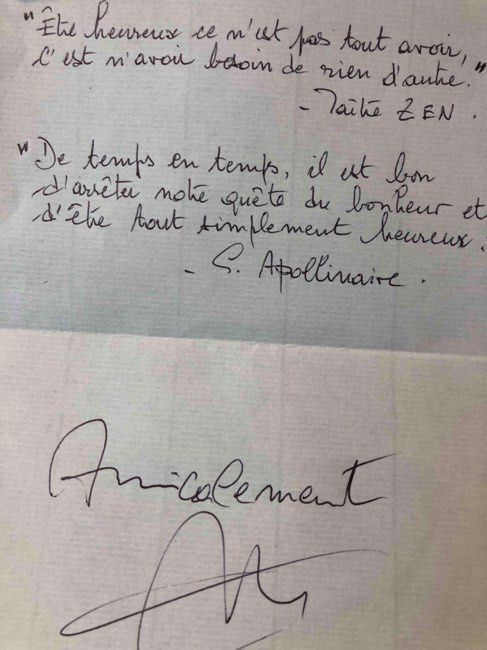 "Être heureux ce n'est pas tout avoir,
c'est n'avoir besoin de rien d'autre."
- Maître ZEN.
"De temps en temps, il est bon
d'arrêter notre quête du bonheur et
d'être tout simplement heureux.
- G. Apollinaire.
Amicalement